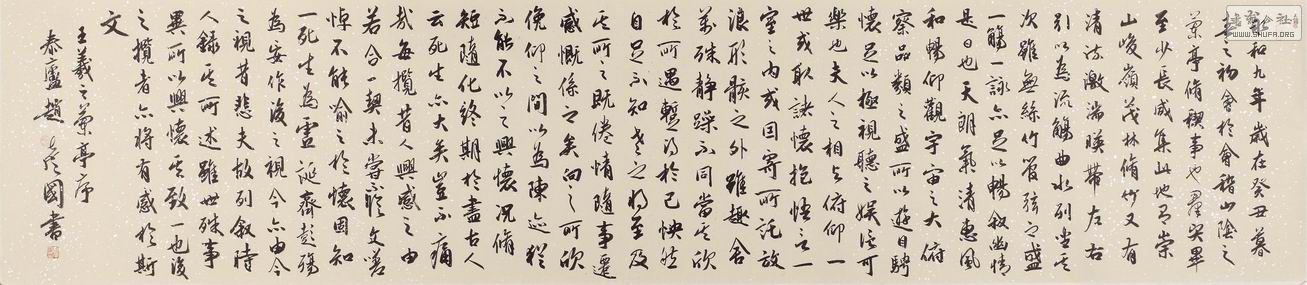 永和九年歲在癸丑暮
春之初會於會稽山陰之
蘭亭脩禊事也羣賢畢
至少長咸集此地有崇
山峻嶺茂林脩竹又有
清流激湍暎帶左右
引以為流觴曲水列坐其
次雖無絲竹管弦之盛
一觴一詠亦足以暢敘幽情
是日也天朗氣清惠風
和暢仰觀宇宙之大俯
察品類之盛所以遊目騁
懷足以極視聽之娛信可
樂也夫人之相與俯仰一
世或取諸懷抱悟言一
室之內或因寄所託放
浪形骸之外雖趣舍
萬殊靜躁不同當其欣
於所遇蹔得於己怏然
自足不知老之將至及
其所之既倦情隨事遷
感慨係之矣向之所欣
俛仰之間以為陳迹猶
不能不以之興懷況脩
短隨化終期於盡古人
云死生亦大矣豈不痛
哉每攬昔人興感之由
若合一契未嘗不臨文嗟
悼不能喻之於懷固知
一死生為虛誕齊彭殤
為妄作後之視今亦由今
之視昔悲夫故列敘時
人錄其所述雖世殊事
異所以興懷其致一也後
之攬者亦將有感於斯
文
王羲之蘭亭序
泰廬趙國書